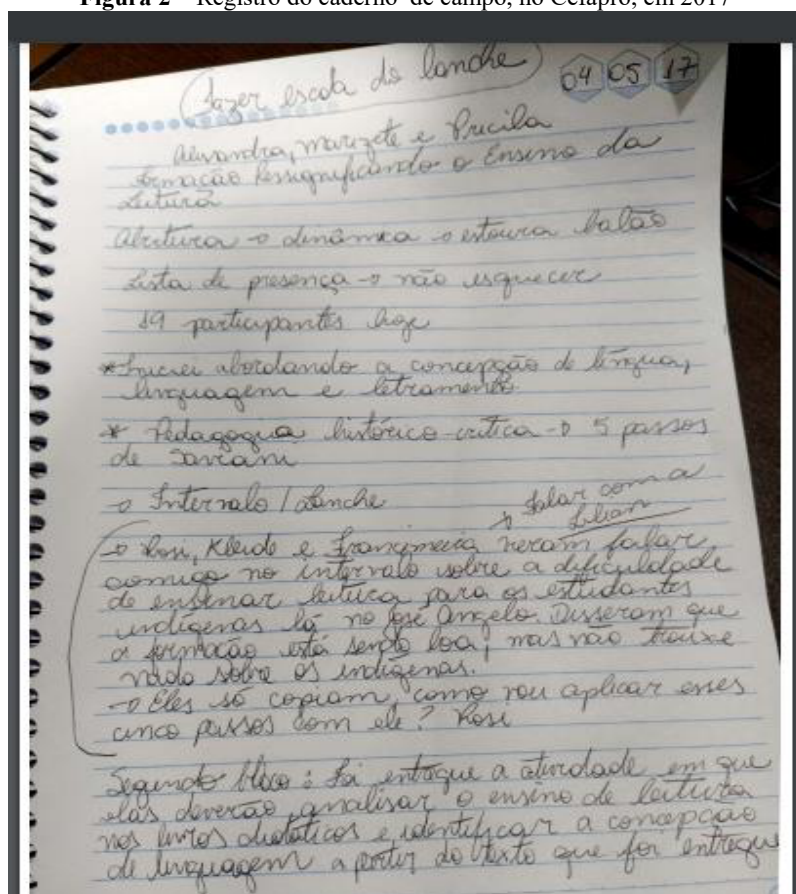 Figura 2 – Registro do caderno de campo, no Cefapro, em 2017
fazer escala do lanche
04 05 17
Alexandra, Marizete e Pricila
Formação Ressignificando o Ensino da
Leitura
Abertura → dinâmica → estoura balão
Lista de presença → não esquecer
19 participantes hoje
* Iniciei abordando a concepção de língua,
linguagem e letramento.
* Pedagogia histórico-crítica → 5 passos
de Saviani
→ Intervalo / Lanche
→ falar com a
Lilian
→ Rosi, Kleide e Francimeira vieram falar
comigo no intervalo sobre a dificuldade
de ensinar leitura para os estudantes
indígenas lá no José Angelo. Disseram que
a formação está sendo boa, mas não trouxe
nada sobre os indígenas.
→ Eles só copiam, como vou aplicar esses
cinco passos com ele? Rosi
Segundo bloco: foi entregue a atividade em que
elas deverão analisar o ensino de leitura
nos livros didáticos e identificar a concepção
de linguagem a partir do texto que foi entregue